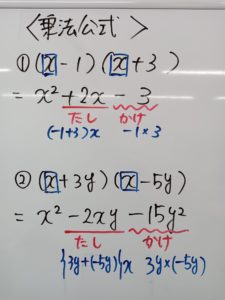 〈乗法公式〉
①(x-1)(x+3)
= x²+2x-3
たし かけ
(-1+3)x -1×3
②(x+3y)(x-5y)
= x²-2xy-15y²
たし かけ
{3y+(-5y)}x 3y×(-5y)